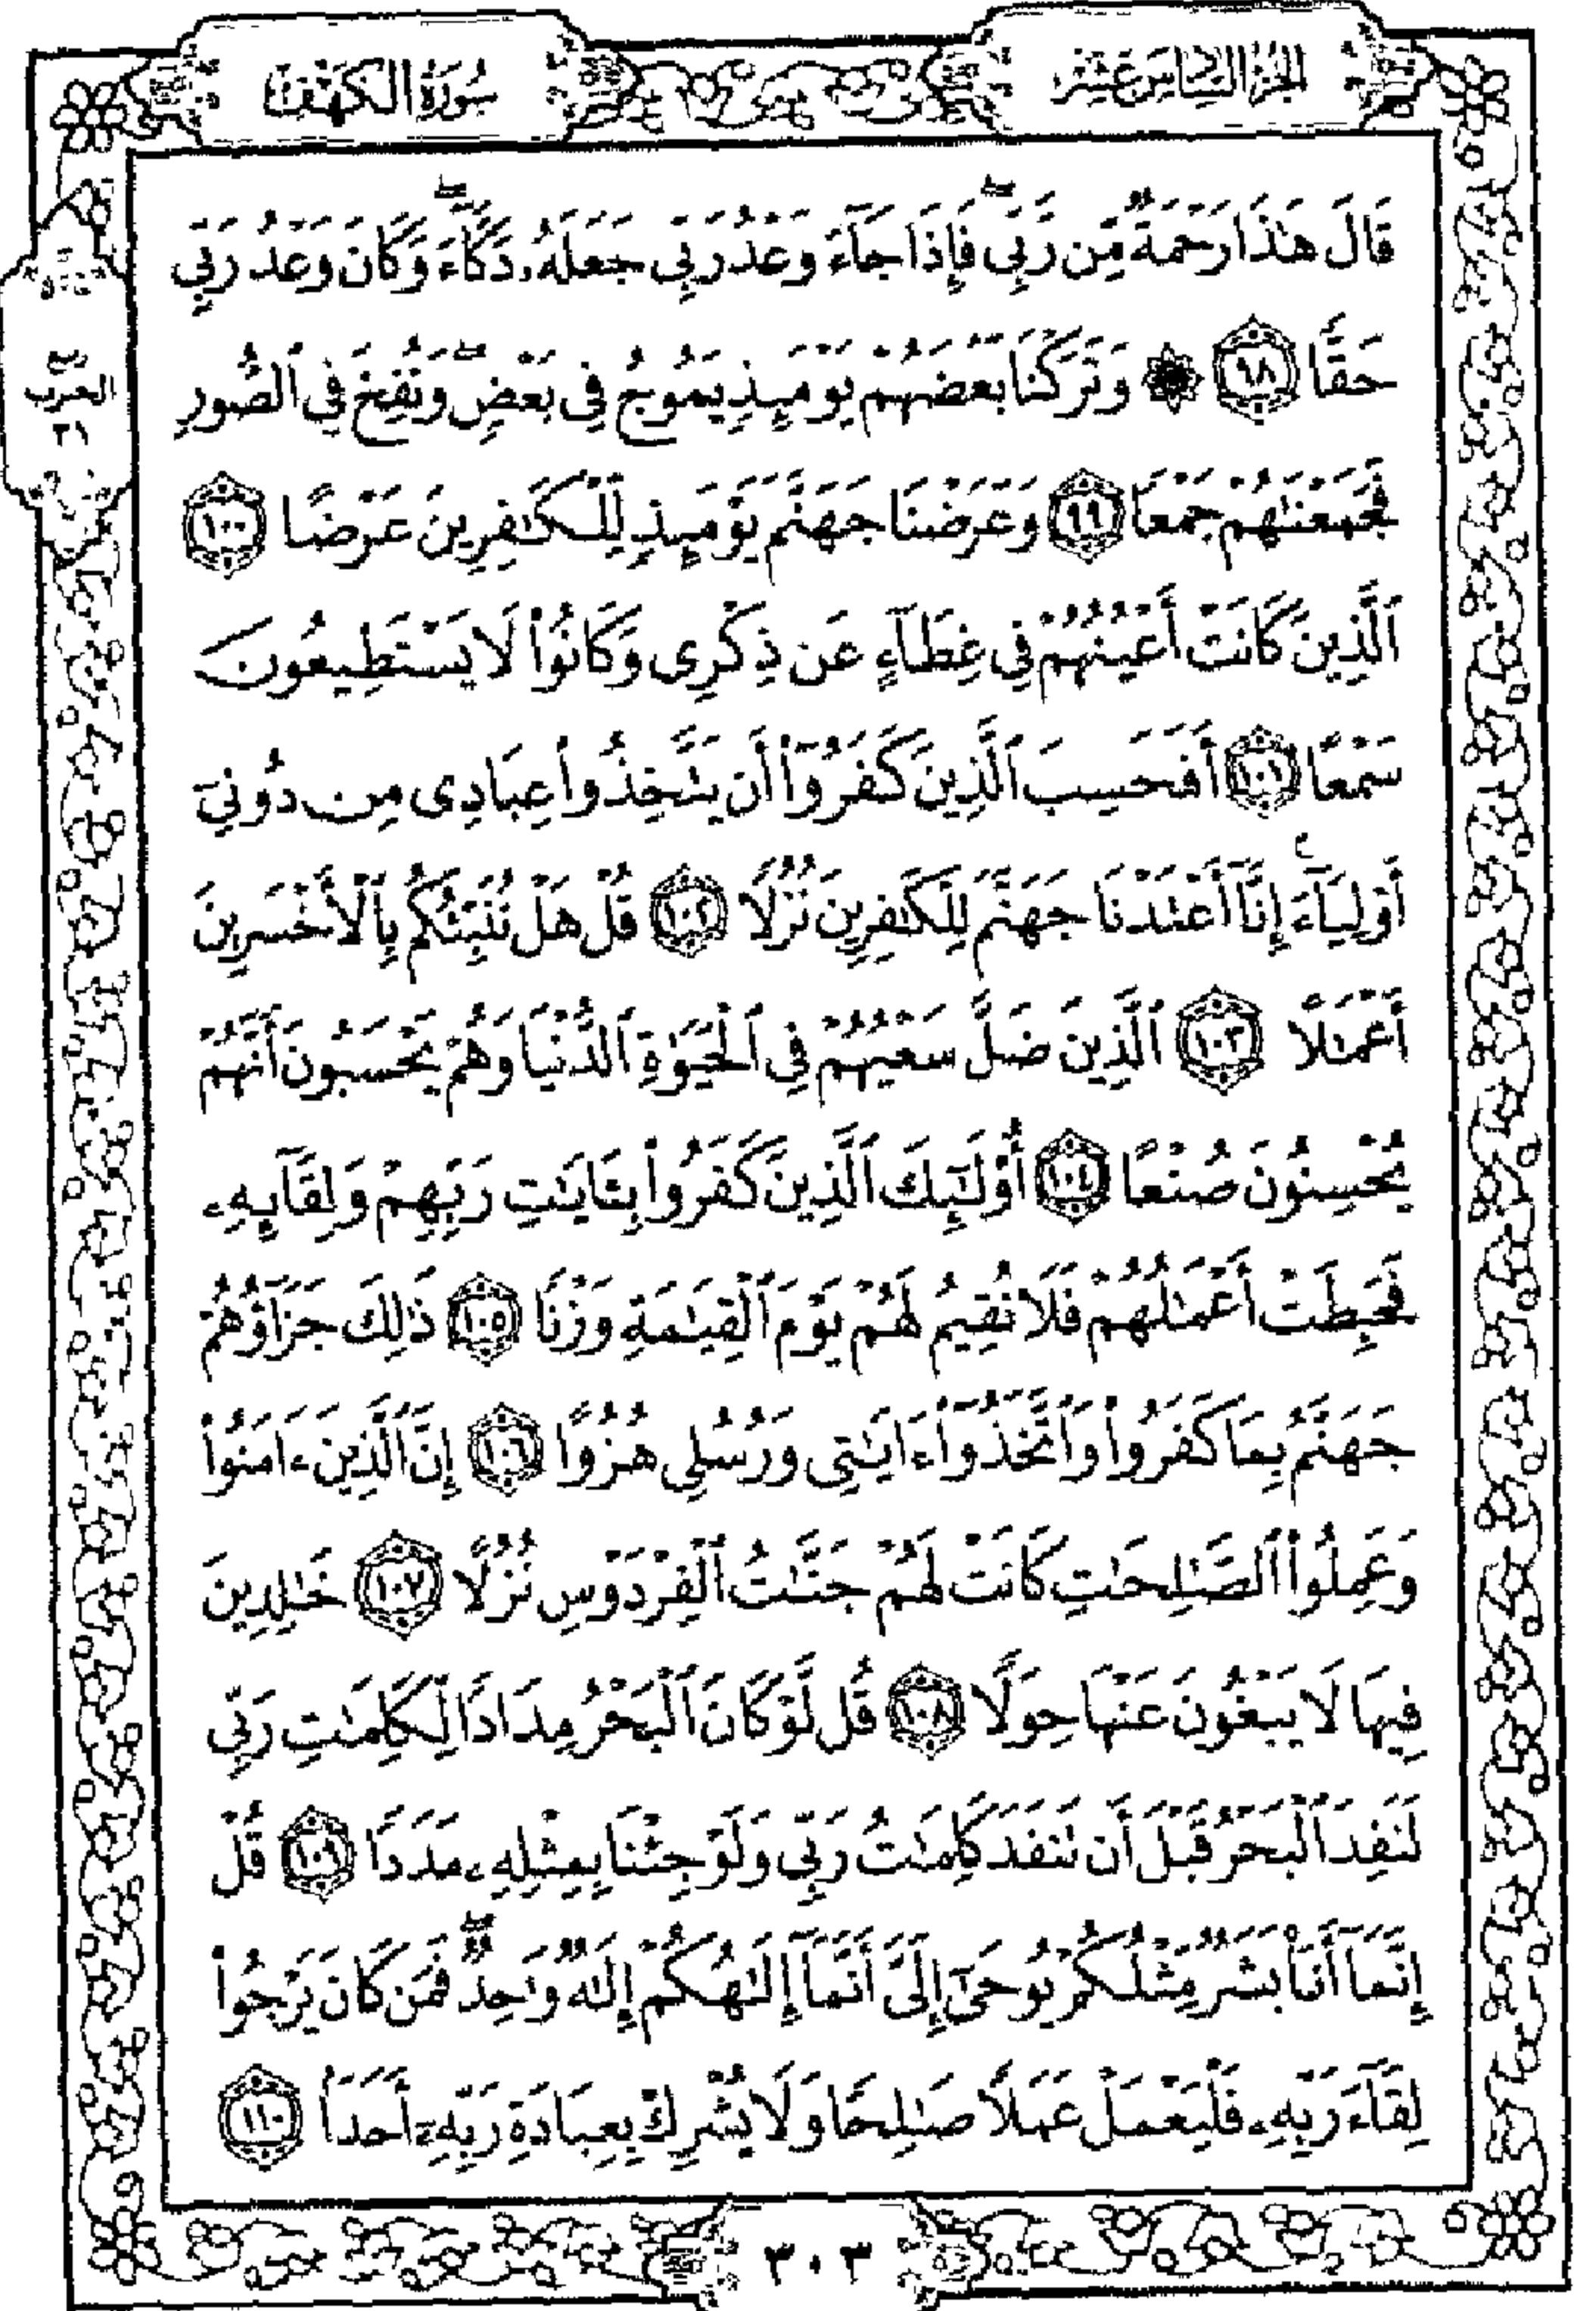 الجزء السادس عشر
سورة الكهف
قَالَ هَٰذَا رَحْمَةٌ مِّن رَّبِّي ۖ فَإِذَا جَآءَ وَعْدُ رَبِّي جَعَلَهُۥ دَكَّآءَ ۖ وَكَانَ وَعْدُ رَبِّي
حَقًّا ٩٨ ۞ وَتَرَكْنَا بَعْضَهُمْ يَوْمَئِذٍ يَمُوجُ فِي بَعْضٍ ۖ وَنُفِخَ فِي ٱلصُّورِ
فَجَمَعْنَٰهُمْ جَمْعًا ٩٩ وَعَرَضْنَا جَهَنَّمَ يَوْمَئِذٍ لِّلْكَٰفِرِينَ عَرْضًا ١٠٠
ٱلَّذِينَ كَانَتْ أَعْيُنُهُمْ فِي غِطَآءٍ عَن ذِكْرِي وَكَانُوا۟ لَا يَسْتَطِيعُونَ
سَمْعًا ١٠١ أَفَحَسِبَ ٱلَّذِينَ كَفَرُوٓا۟ أَن يَتَّخِذُوا۟ عِبَادِي مِن دُونِيٓ
أَوْلِيَآءَ ۚ إِنَّآ أَعْتَدْنَا جَهَنَّمَ لِلْكَٰفِرِينَ نُزُلًا ١٠٢ قُلْ هَلْ نُنَبِّئُكُم بِٱلْأَخْسَرِينَ
أَعْمَٰلًا ١٠٣ ٱلَّذِينَ ضَلَّ سَعْيُهُمْ فِي ٱلْحَيَوٰةِ ٱلدُّنْيَا وَهُمْ يَحْسَبُونَ أَنَّهُمْ
يُحْسِنُونَ صُنْعًا ١٠٤ أُو۟لَٰٓئِكَ ٱلَّذِينَ كَفَرُوا۟ بِـَٔايَٰتِ رَبِّهِمْ وَلِقَآئِهِۦ
فَحَبِطَتْ أَعْمَٰلُهُمْ فَلَا نُقِيمُ لَهُمْ يَوْمَ ٱلْقِيَٰمَةِ وَزْنًا ١٠٥ ذَٰلِكَ جَزَآؤُهُمْ
جَهَنَّمُ بِمَا كَفَرُوا۟ وَٱتَّخَذُوٓا۟ ءَايَٰتِي وَرُسُلِي هُزُوًا ١٠٦ إِنَّ ٱلَّذِينَ ءَامَنُوا۟
وَعَمِلُوا۟ ٱلصَّٰلِحَٰتِ كَانَتْ لَهُمْ جَنَّٰتُ ٱلْفِرْدَوْسِ نُزُلًا ١٠٧ خَٰلِدِينَ
فِيهَا لَا يَبْغُونَ عَنْهَا حِوَلًا ١٠٨ قُل لَّوْ كَانَ ٱلْبَحْرُ مِدَادًا لِّكَلِمَٰتِ رَبِّي
لَنَفِدَ ٱلْبَحْرُ قَبْلَ أَن تَنفَدَ كَلِمَٰتُ رَبِّي وَلَوْ جِئْنَا بِمِثْلِهِۦ مَدَدًا ١٠٩ قُلْ
إِنَّمَآ أَنَا۠ بَشَرٌ مِّثْلُكُمْ يُوحَىٰٓ إِلَىَّ أَنَّمَآ إِلَٰهُكُمْ إِلَٰهٌ وَٰحِدٌ ۖ فَمَن كَانَ يَرْجُوا۟
لِقَآءَ رَبِّهِۦ فَلْيَعْمَلْ عَمَلًا صَٰلِحًا وَلَا يُشْرِكْ بِعِبَادَةِ رَبِّهِۦٓ أَحَدًۢا ١١٠
الحزب
٣٠٣